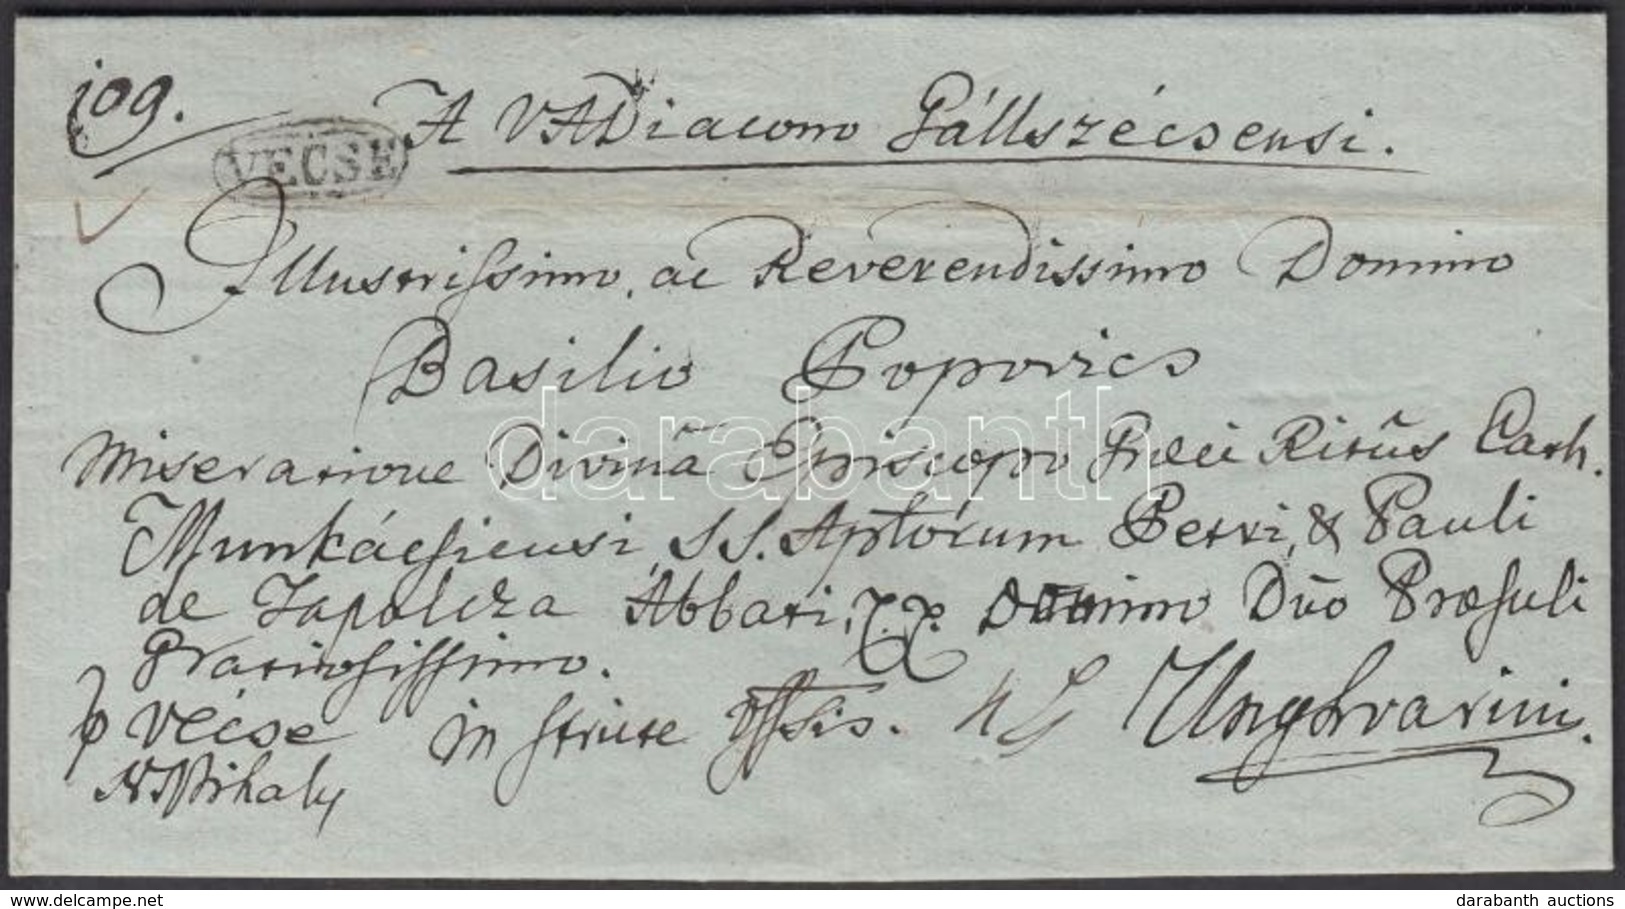 109. A VADiacono Gállszécsensi.
VECSE
Illustrissimo, ac Reverendissimo Domino
Basilio Popovics
Miseratione Divinâ Episcopo Graeci Ritûs Cath.
Munkácsiensi, SS. Aptòrum Petri, & Pauli
de Tapolcza Abbati, Domino Dño Praesuli
Gratiosissimo.
p Vécse in stricte Offsis. Unghvarini.
N Mihaly
darabanth
www.delcampe.net
darabanth auctions